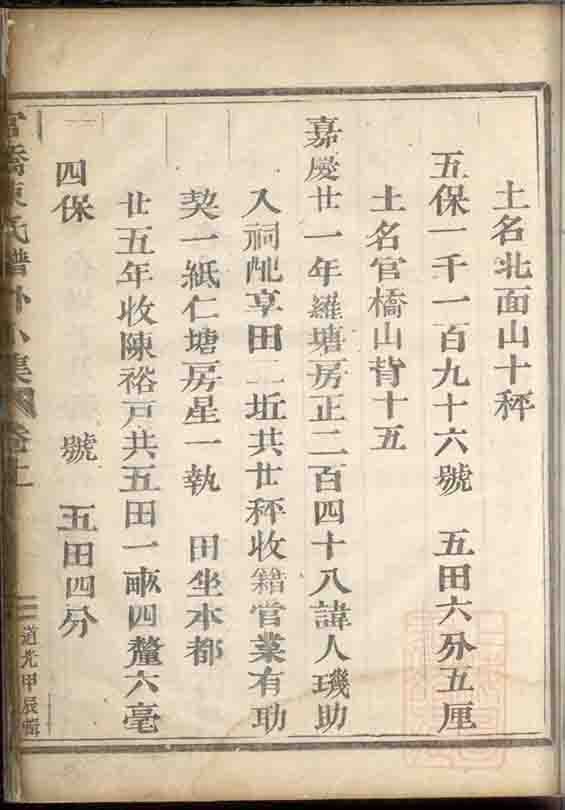 土名北面山十秤
五保一千一百九十六號　五田六分五厘
土名官橋山背十五
嘉慶廿一年羅塘房正二百四十八諱人璣助
入祠配享田二坵共廿秤收籍管業有助
契一紙仁塘房星一執　田坐本都
廿五年收陳裕戶共五田一畝四釐六毫
四保　號　五田四分
官橋陳氏譜外小集　卷上
道光甲辰輯